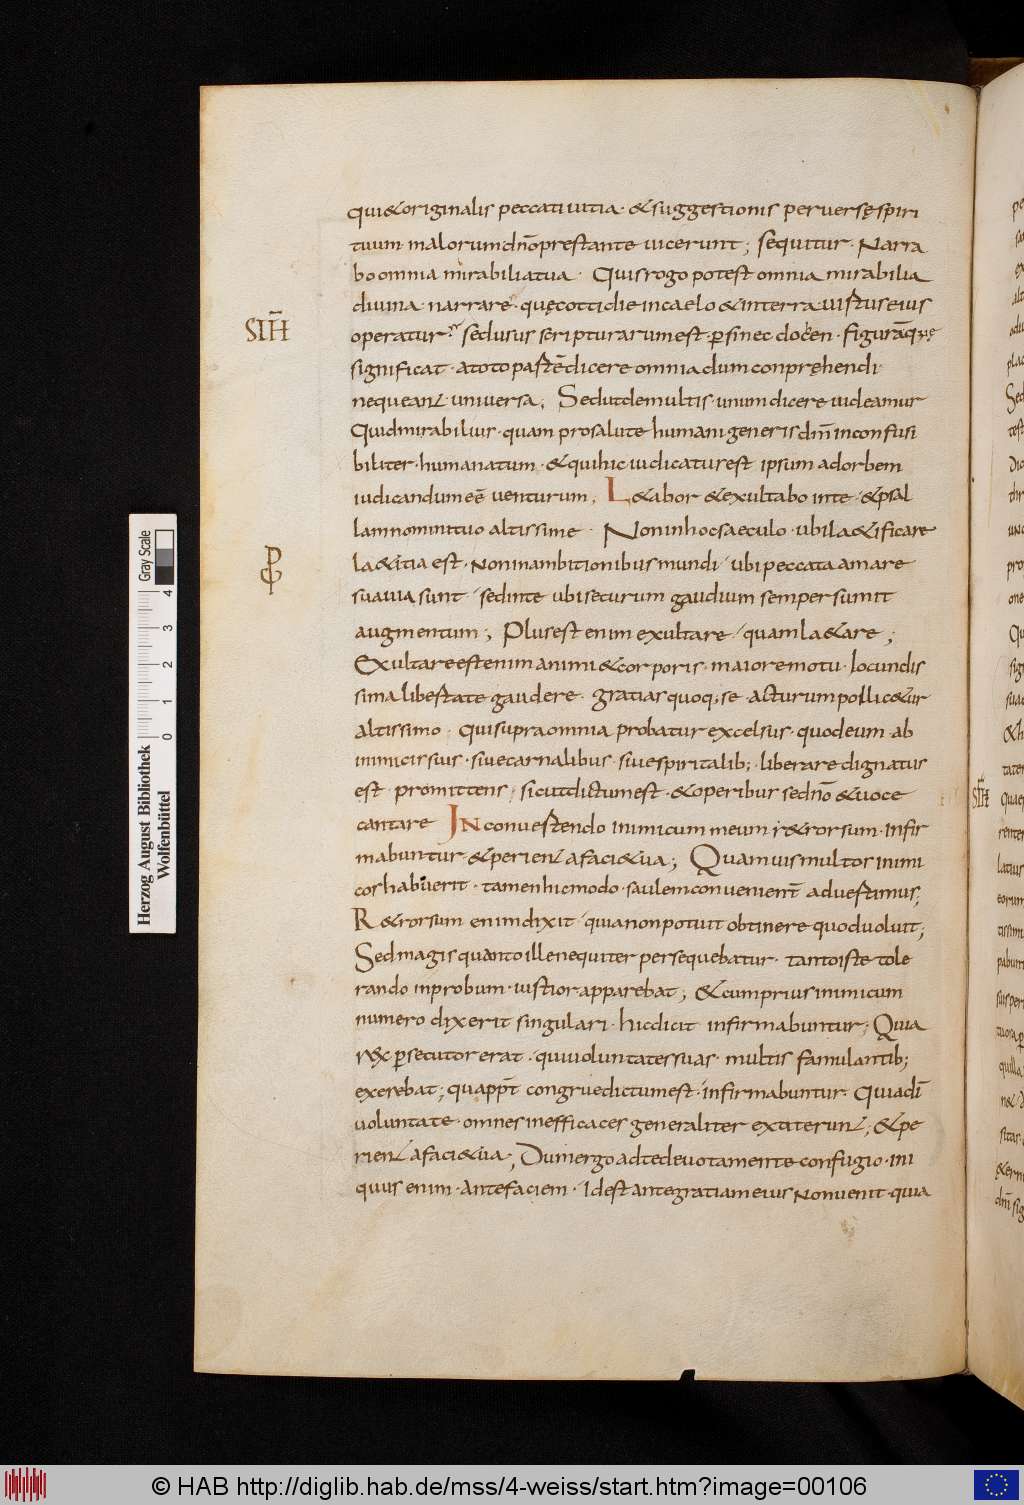 qui & originalis peccati uitia · & suggestionis peruerse spiri
tuum malorum dño prestante uicerunt ; sequitur · Narra
bo omnia mirabilia tua · Quis rogo potest omnia mirabilia
diuina · narrare · que cottidie in caelo & in terra uirtus eius
SIH̄
operatur sed usus scripturarum est · ꝑsinec docħen · figurāq;
significat · a toto partē dicere omnia dum conprehendi
nequeant uniuersa ; Sed ut de multis · unum dicere uideamur
Quid mirabilius · quam pro salute humani generis dm̄ inconfusi
biliter · humanatum · & qui hic iudicatur est ipsum ad orbem
iudicandum eē uenturum . L&abor & exultabo in te · & psal
lam nomini tuo altissime · Non in hoc saeculo · ubi laedificare
la&itia est · Non in ambitionibus mundi · ubi peccata amare
suauia sunt · sed in te ubi securum gaudium semper sumit
augmentum ; Plus est enim exultare · quam la&are ;
Exultare est enim animi & corporis · maiore motu · iocundis
sima libertate gaudere · gratias quoq; se · acturum pollic&ur
altissimo · qui supra omnia probatur excelsus · quod eum ab
inimicis suis · siue carnalibus · siue spiritalib; · liberare dignatus
est · promittens · sicut dictum est · & operibus sed nō & uoce
cantare In conuertendo inimicum meum r&rorsum · infir
mabuntur · & perient a faciae tua ; Quamuis multos inimi
cos habuerit · tamen hic modo · saulem conuenient̄ aduertimus ;
R&rorsum enim dixit · quia non potuit obtinere quod uoluit ;
Sed magis quanto ille nequiter persequebatur · tanto iste tole
rando inprobum · iustior apparebat ; & cum prius inimicum
numero dixerit singulari · hic dicit infirmabuntur ; Quia
rex ꝑsecutor erat · qui uoluntates suas · multis famulantib;
exerebat ; quappt̄ congrue dictum est · infirmabuntur · Quia dī
uoluntate · omnes inefficaces generaliter extiterunt ; & pe
rient a faciae tua ; Dum ergo ad te deuotamente confugio · ini
quus enim · ante faciem · Id est ante gratiam eius Non uenit · quia
Herzog August Bibliothek
Wolfenbüttel
0 1 2 3 4
Gray Scale
© HAB http://diglib.hab.de/mss/4-weiss/start.htm?image=00106